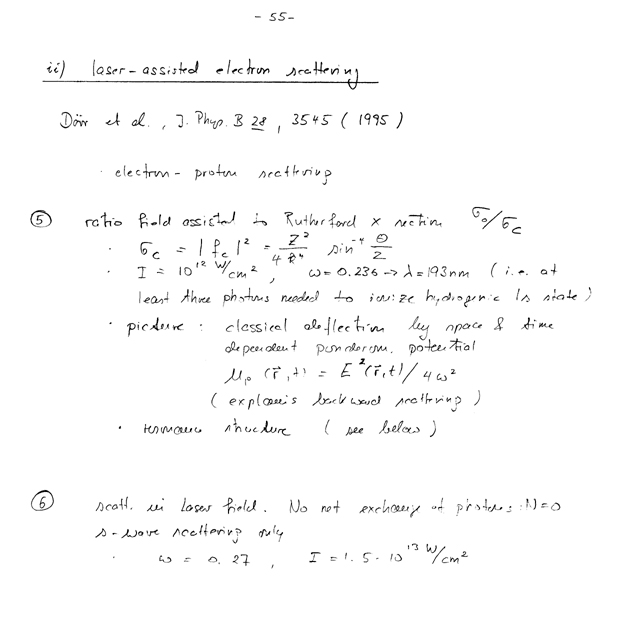 - 55 -
ii) laser-assisted electron scattering
Dörr et al., J. Phys. B 28, 3545 (1995)
· electron - proton scattering
⑤ ratio field assisted to Rutherford x section σ₀/σc
· σc = |fc|² = Z²/4k⁴ sin⁻⁴ θ/2
· I = 10¹² W/cm², ω = 0.236 → λ = 193 nm (i.e. at
least three photons needed to ionize hydrogenic 1s state)
· picture : classical deflection by space & time
dependent ponderom. potential
μp (r⃗,t) = E²(r⃗,t)/4ω²
(explains backward scattering)
· resonance structure (see below)
⑥ scatt. in laser field. No net exchange of photons: N=0
s-wave scattering only
· ω = 0.27, I = 1.5·10¹³ W/cm²